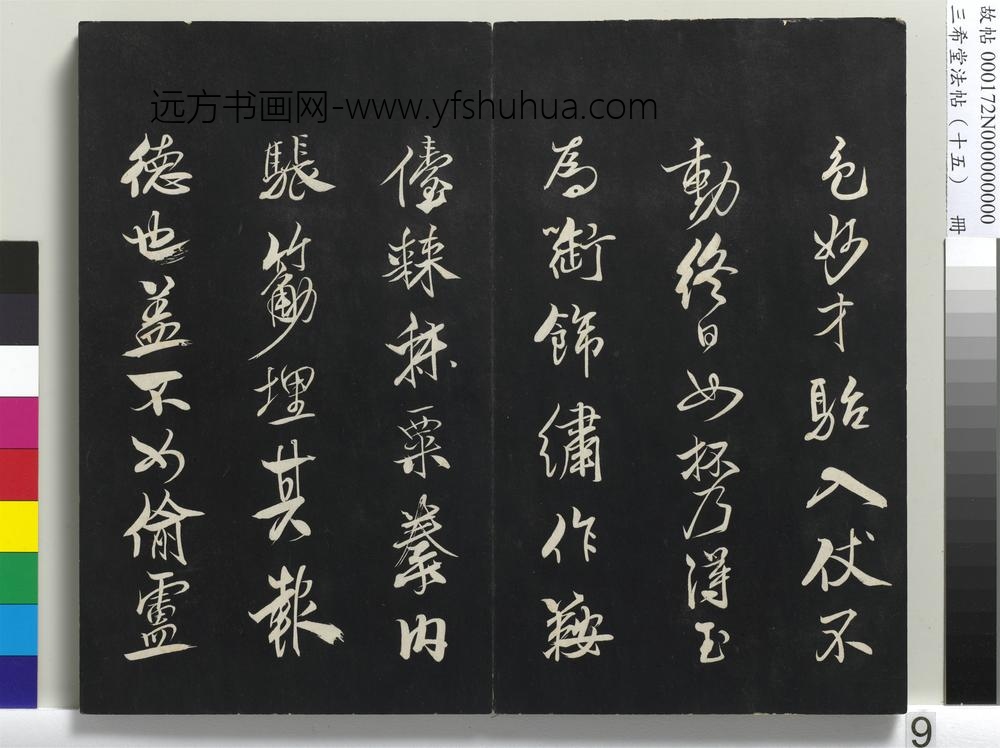 故帖 000172N000000000
三希堂法帖（十五） 册
远方书画网-www.yfshuhua.com
色妙才駘入仗不
動終日如乃得玉
為銜飾繡作鞍
儓棘秣粟豢内
筋埋其報
德也盖不如偷盧
9